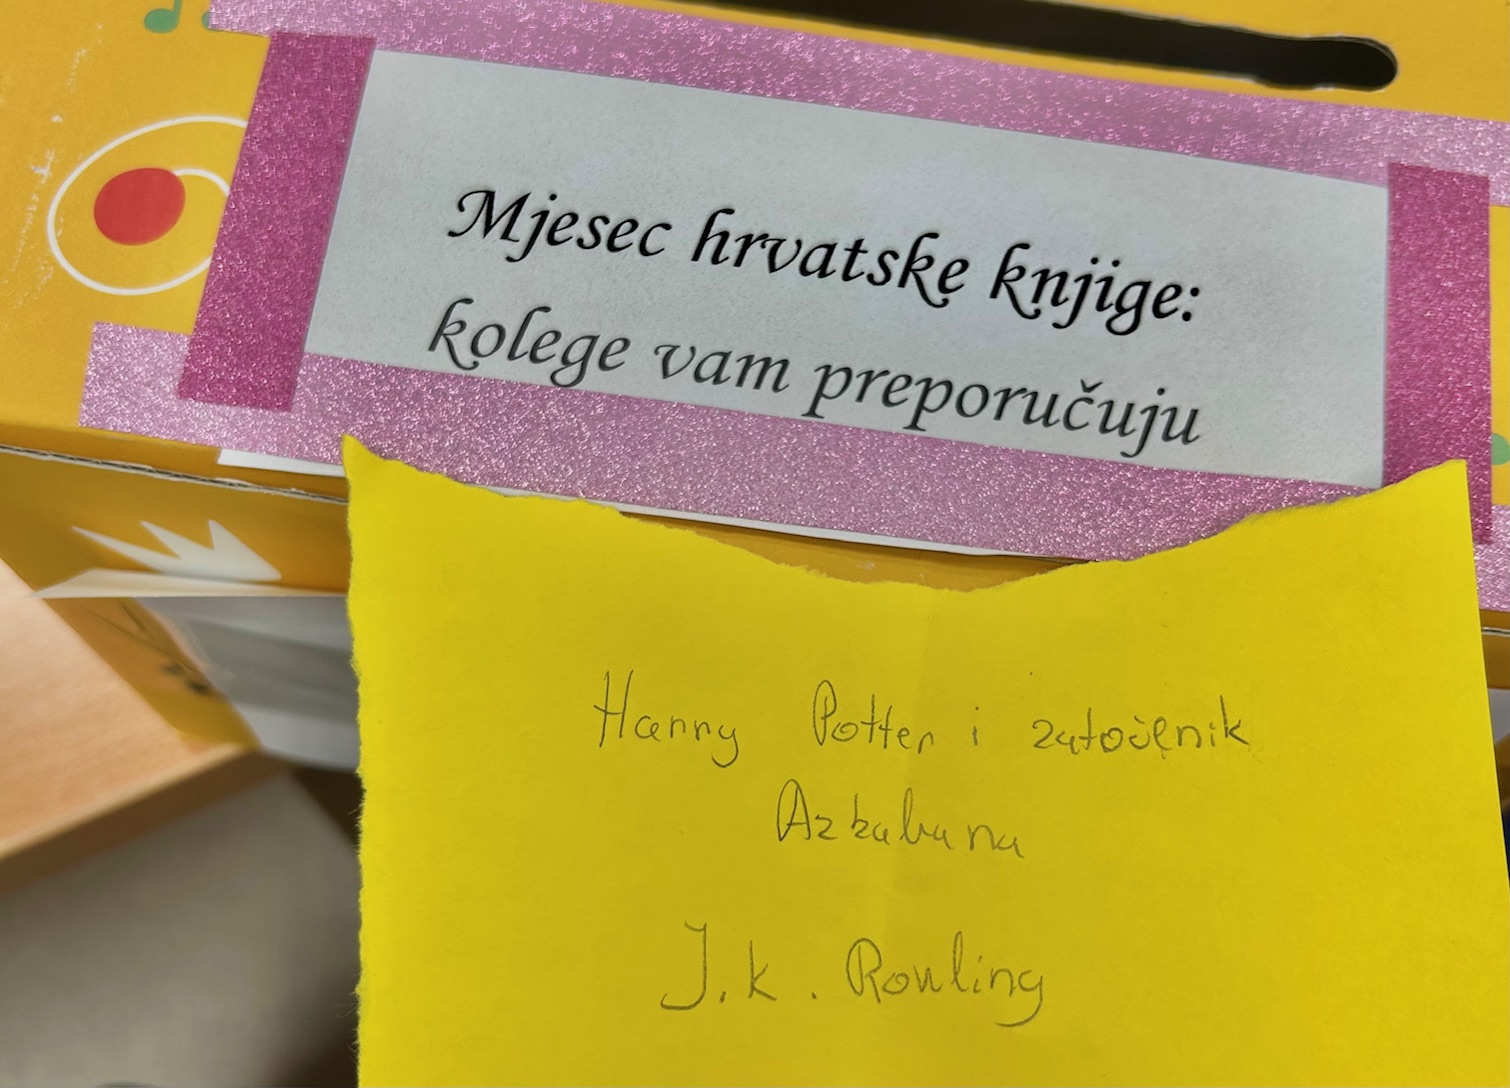 Mjesec hrvatske knjige:
kolege vam preporučuju
Harry Potter i zatočenik
Azkabana
J.K. Rowling